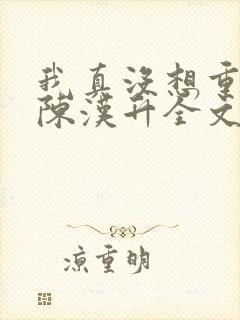 我真没想重
陈漢升全文
凉重明